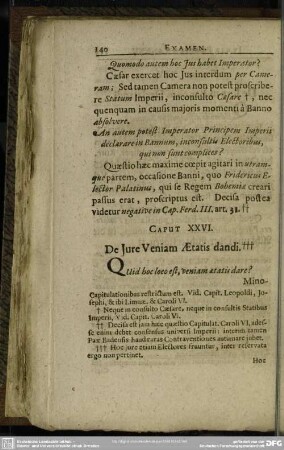 140 EXAMEN.
Quomodo autem hoc Jus habet Imperator?
Cæsar exercet hoc Jus interdum per Came-
ram; Sed tamen Camera non potest proscribe-
re Statum Imperii, inconsulto Cæsare †, nec
quenquam in causis majoris momenti à Banno
absolvere.
An autem potest Imperator Principem Imperii
declarare in Bannum, inconsultis Electoribus,
qui non sunt complices?
Quæstio hæc maxime cœpit agitari in utram-
que partem, occasione Banni, quo Fridericus E-
lector Palatinus, qui se Regem Bohemiæ creari
passus erat, proscriptus est. Decisa postea
videtur negative in Cap. Ferd. III. art. 31. ††
CAPUT XXVI.
De Jure Veniam Ætatis dandi. †††
QUid hoc loco est, veniam ætatis dare?
Mino-
Capitulationibus restrictum est. Vid. Capit. Leopoldi, Jo-
sephi, & ibi Limnæ. & Caroli VI.
† Neque inconsulto Cæsare, neque inconsultis Statibus
Imperii, Vid. Capit. Caroli VI.
†† Decisa est jam hæc quæstio Capitulat. Caroli VI. ades-
se enim debet consensus universi Imperii: interim tamen
Pax Badensis hasdictas Contraventiones
††† Hoc jure etiam Electores fruuntur, inter reservata
ergo non pertinet.
Hoc